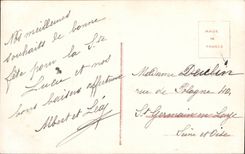 Nos meilleurs
souhaits de bonne
fête pour la Ste
Lucie et nos
bons baisers affectueux
Albert et Léa
MADE IN
FRANCE
Madame
rue de Pologne 110,
St Germain en Laye
Seine et Oise